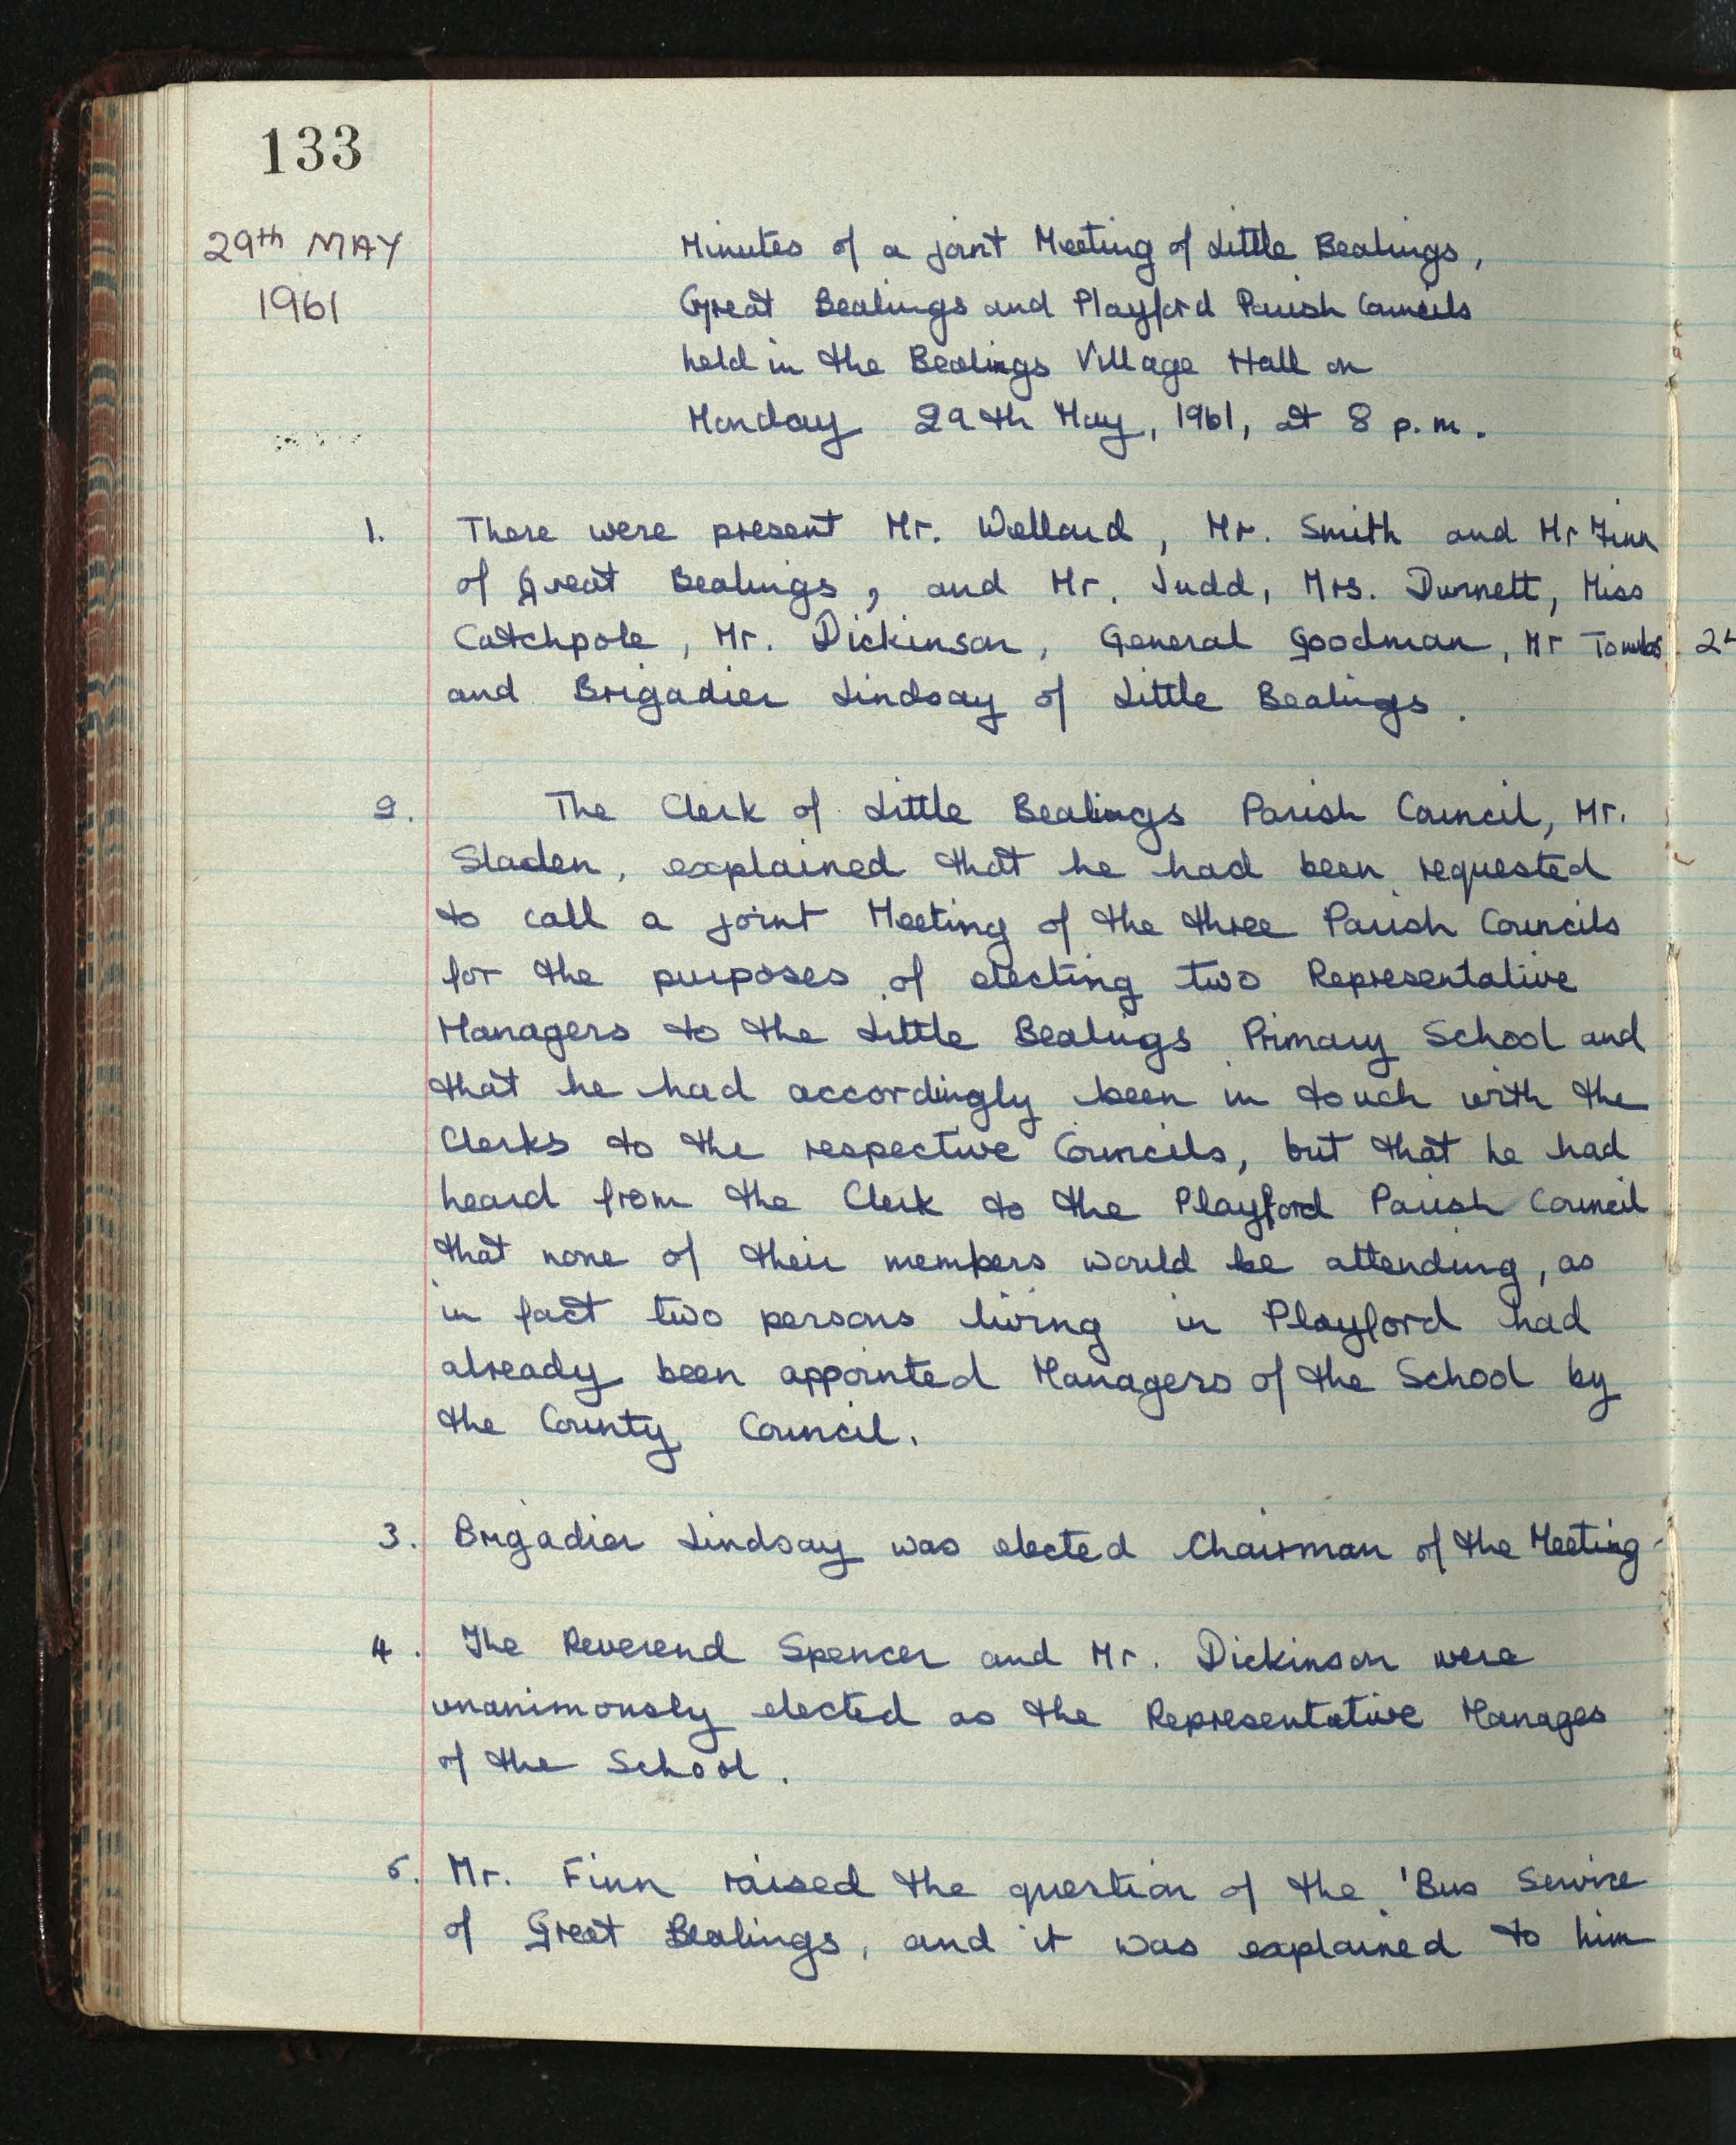 133
29th MAY
1961
Minutes of a joint Meeting of Little Bealings,
Great Bealings and Playford Parish Councils
held in the Bealings Village Hall on
Monday 29th May, 1961, at 8 p.m.
1. There were present Mr. Wellard, Mr. Smith and Mr Finn
of Great Bealings, and Mr. Judd, Mrs. Durnett, Miss
Catchpole, Mr. Dickinson, General Goodman, Mr Tombs
and Brigadier Lindsay of Little Bealings.
2. The Clerk of Little Bealings Parish Council, Mr.
Sladen, explained that he had been requested
to call a joint Meeting of the three Parish Councils
for the purposes of electing two Representative
Managers to the Little Bealings Primary School and
that he had accordingly been in touch with the
Clerks to the respective Councils, but that he had
heard from the Clerk to the Playford Parish Council
that none of their members would be attending, as
in fact two persons living in Playford had
already been appointed Managers of the School by
the County Council.
3. Brigadier Lindsay was elected Chairman of the Meeting.
4. The Reverend Spencer and Mr. Dickinson were
unanimously elected as the Representative Manages
of the School.
5. Mr. Finn raised the question of the 'Bus Service
of Great Bealings, and it was explained to him